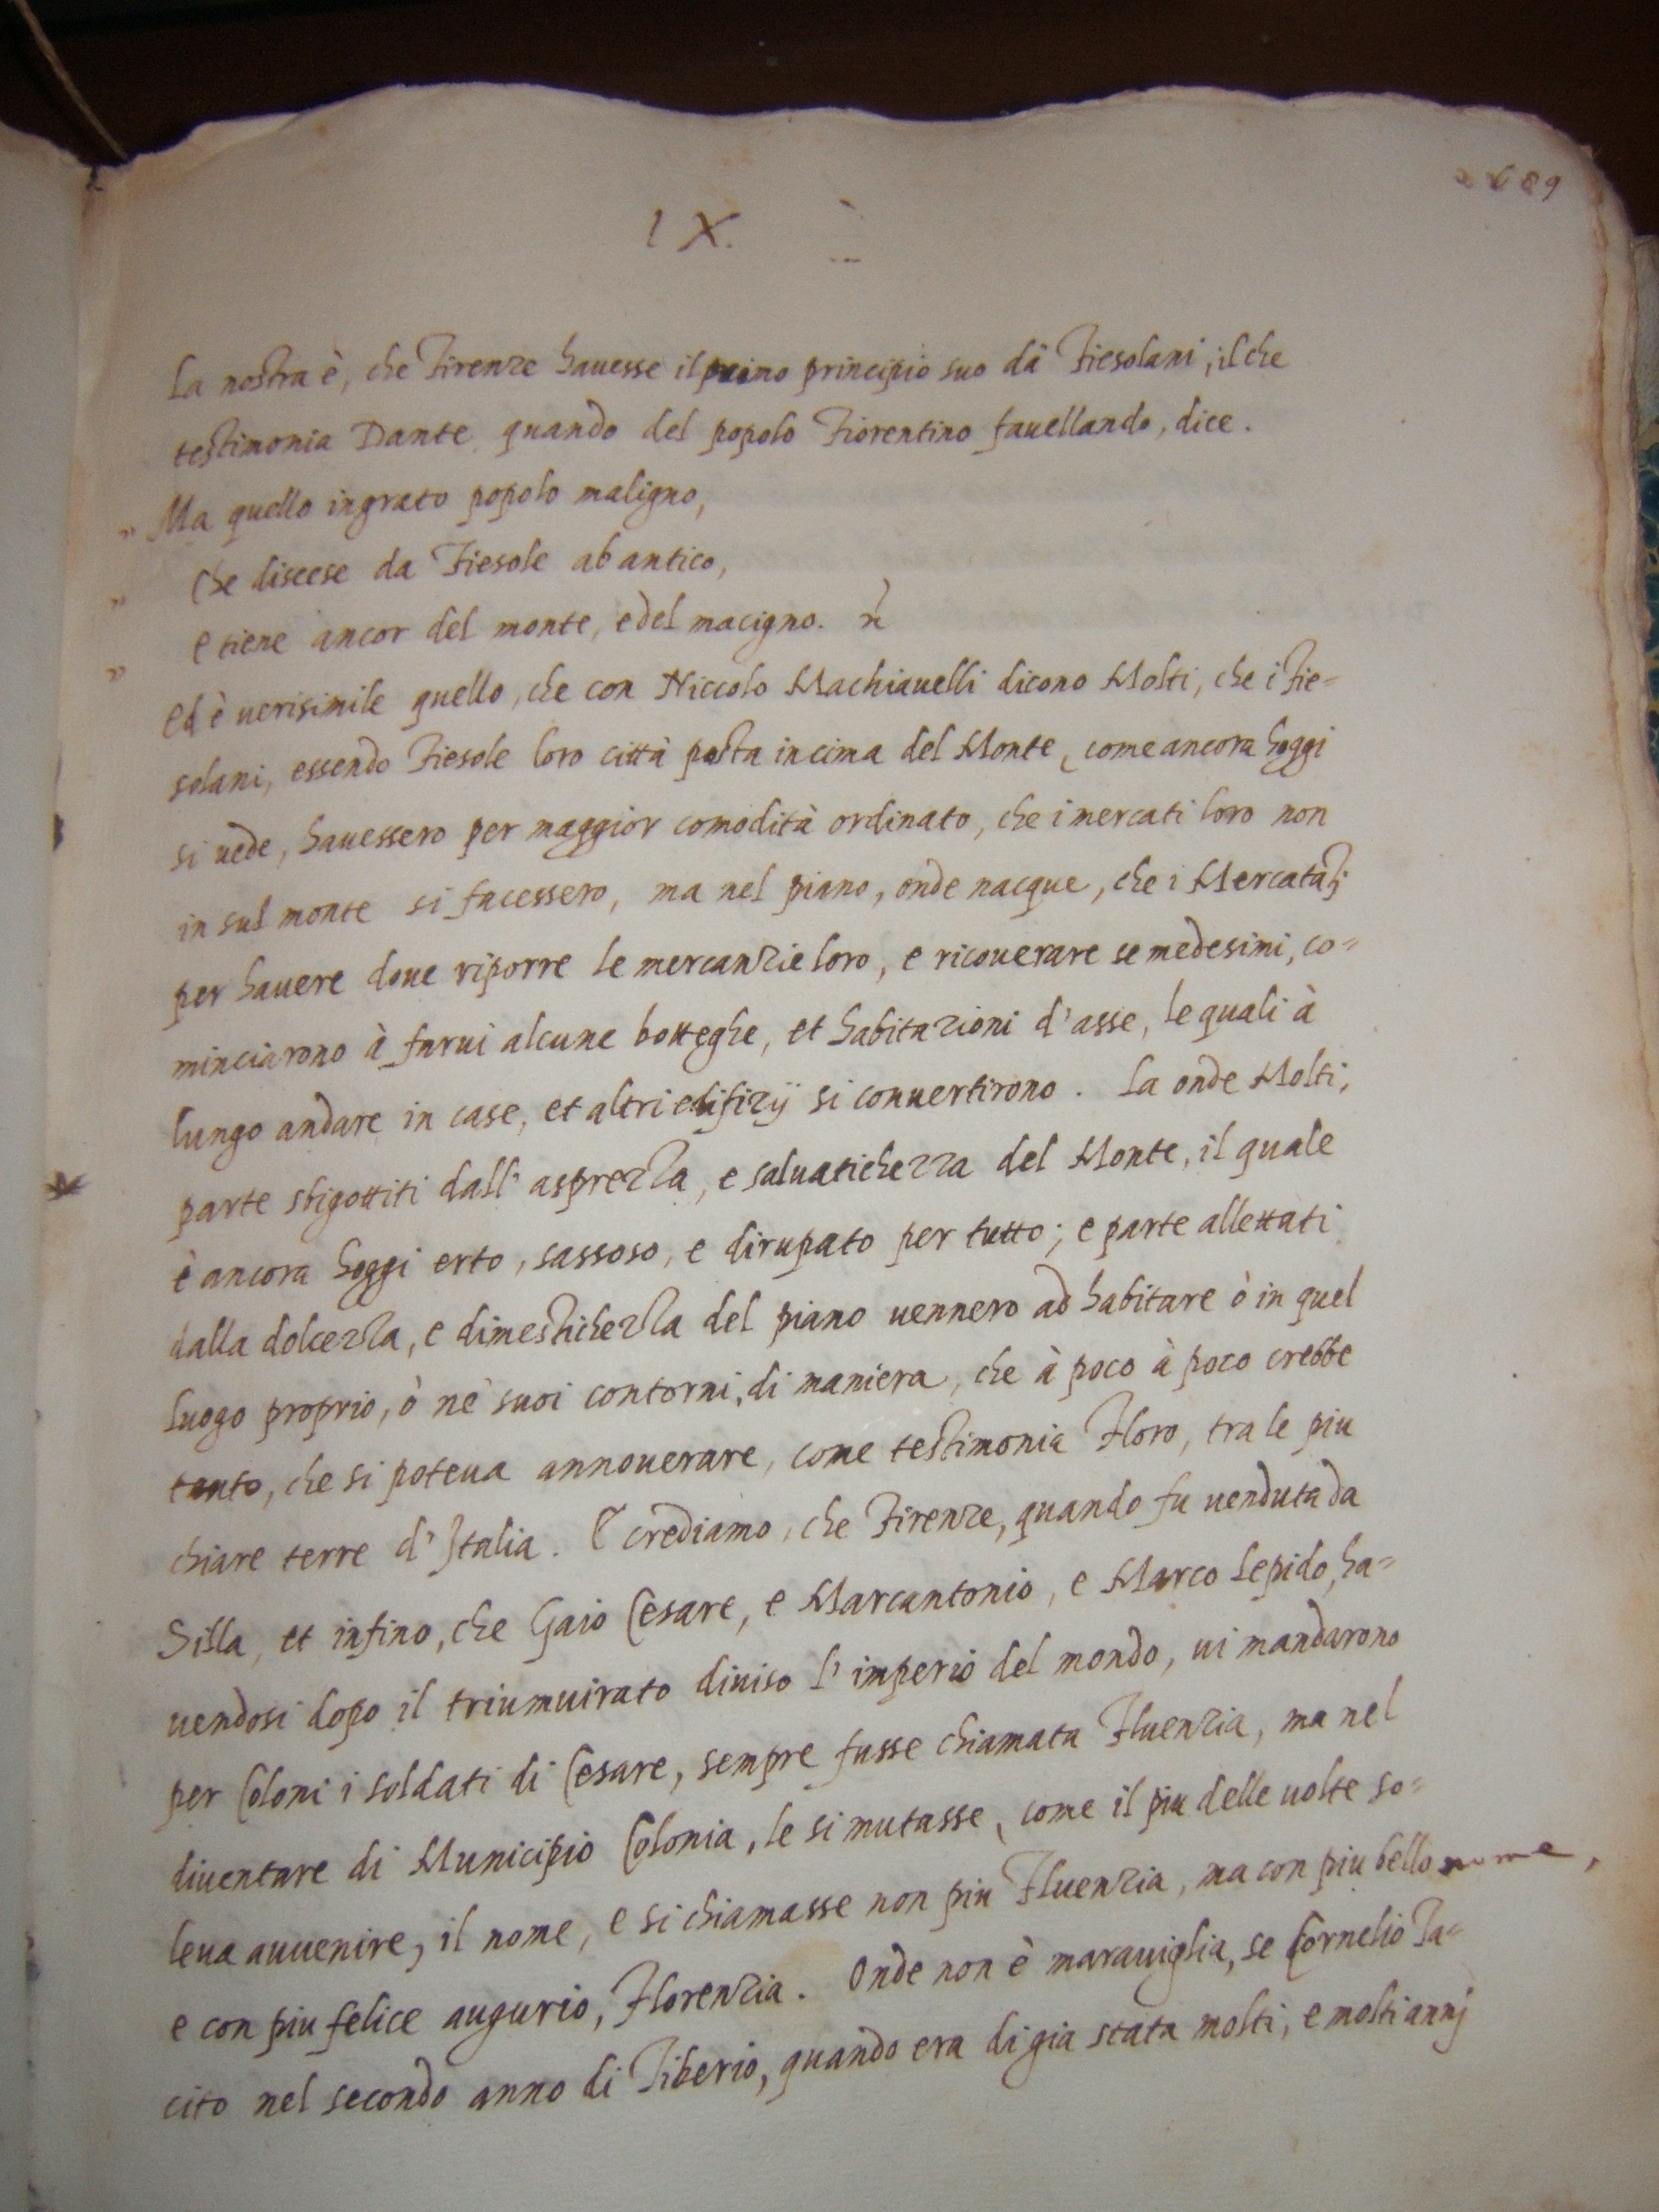 689
IX.
La nostra è, che Firenze hauesse il primo principio suo dà Fiesolani, il che
testimonia Dante, quando del popolo Fiorentino fauellando, dice.
„ Ma quello ingrato popolo maligno,
„ Che discese da Fiesole ab antico,
„ E tiene ancor del monte, e del macigno.
Ed è uerisimile quello, che con Niccolo Machiauelli dicono Molti, che i Fie=
solani, essendo Fiesole loro città posta in cima del Monte, come ancora hoggi
si uede, hauessero per maggior comodità ordinato, che i mercati loro non
in sul monte si facessero, ma nel piano, onde nacque, che i Mercatātj
per hauere doue riporre le mercanzie loro, e ricouerare se medesimi, co=
minciarono à farui alcune botteghe, et habitazioni d'asse, le quali à
lungo andare in case, et altri edifizij si conuertirono. La onde Molti,
parte sbigottiti dall'asprezza, e saluatichezza del Monte, il quale
è ancora hoggi erto, sassoso, e dirupato per tutto; e parte allettati
dalla dolcezza, e dimestichezza del piano uennero ad habitare ò in quel
luogo proprio, ò ne' suoi contorni, di maniera, che à poco à poco crebbe
tanto, che si poteua annouerare, come testimonia Floro, tra le piu
chiare terre d'Italia. E crediamo, che Firenze, quando fu uenduta da
Silla, et infino, che Gaio Cesare, e Marcantonio, e Marco Lepido, ha=
uendosi dopo il triumuirato diuiso l'imperio del mondo, ui mandarono
per Coloni i soldati di Cesare, sempre fusse chiamata Fluenzia, ma nel
diuentare di Municipio Colonia, le si mutasse, come il piu delle uolte so=
leua auuenire, il nome, e si chiamasse non piu Fluenzia, ma con piu bello nome,
e con piu felice augurio, Florenzia. Onde non è marauiglia, se Cornelio Ta=
cito nel secondo anno di Tiberio, quando era di gia stata molti, e molti annj